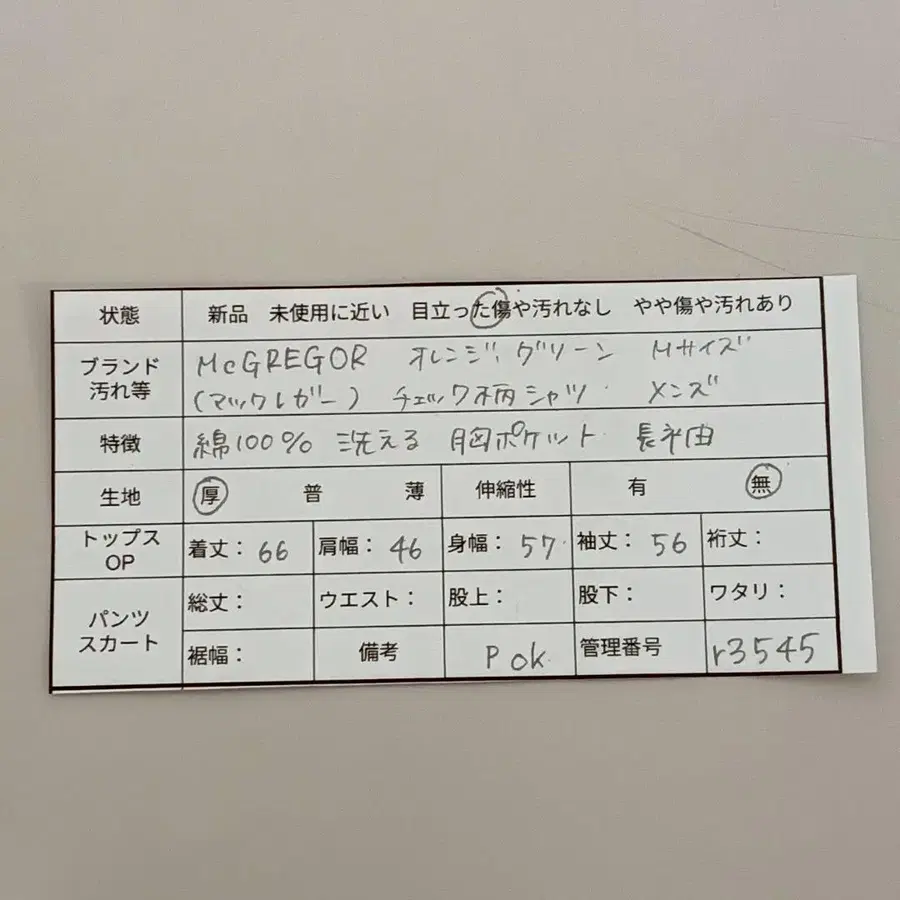 状態 新品 未使用に近い 目立った傷や汚れなし やや傷や汚れあり
ブランド McGREGOR オレンジ、グリーン Mサイズ
汚れ等 (マックレガー) チェック柄シャツ メンズ
特徴 綿100% 洗える 胸ポケット 長袖
生地 厚 普 薄 伸縮性 有 無
トップス OP 着丈: 66 肩幅: 46 身幅: 57 袖丈: 56 裄丈:
パンツ スカート 総丈: ウエスト: 股上: 股下: ワタリ:
裾幅: 備考 P ok 管理番号 r3545